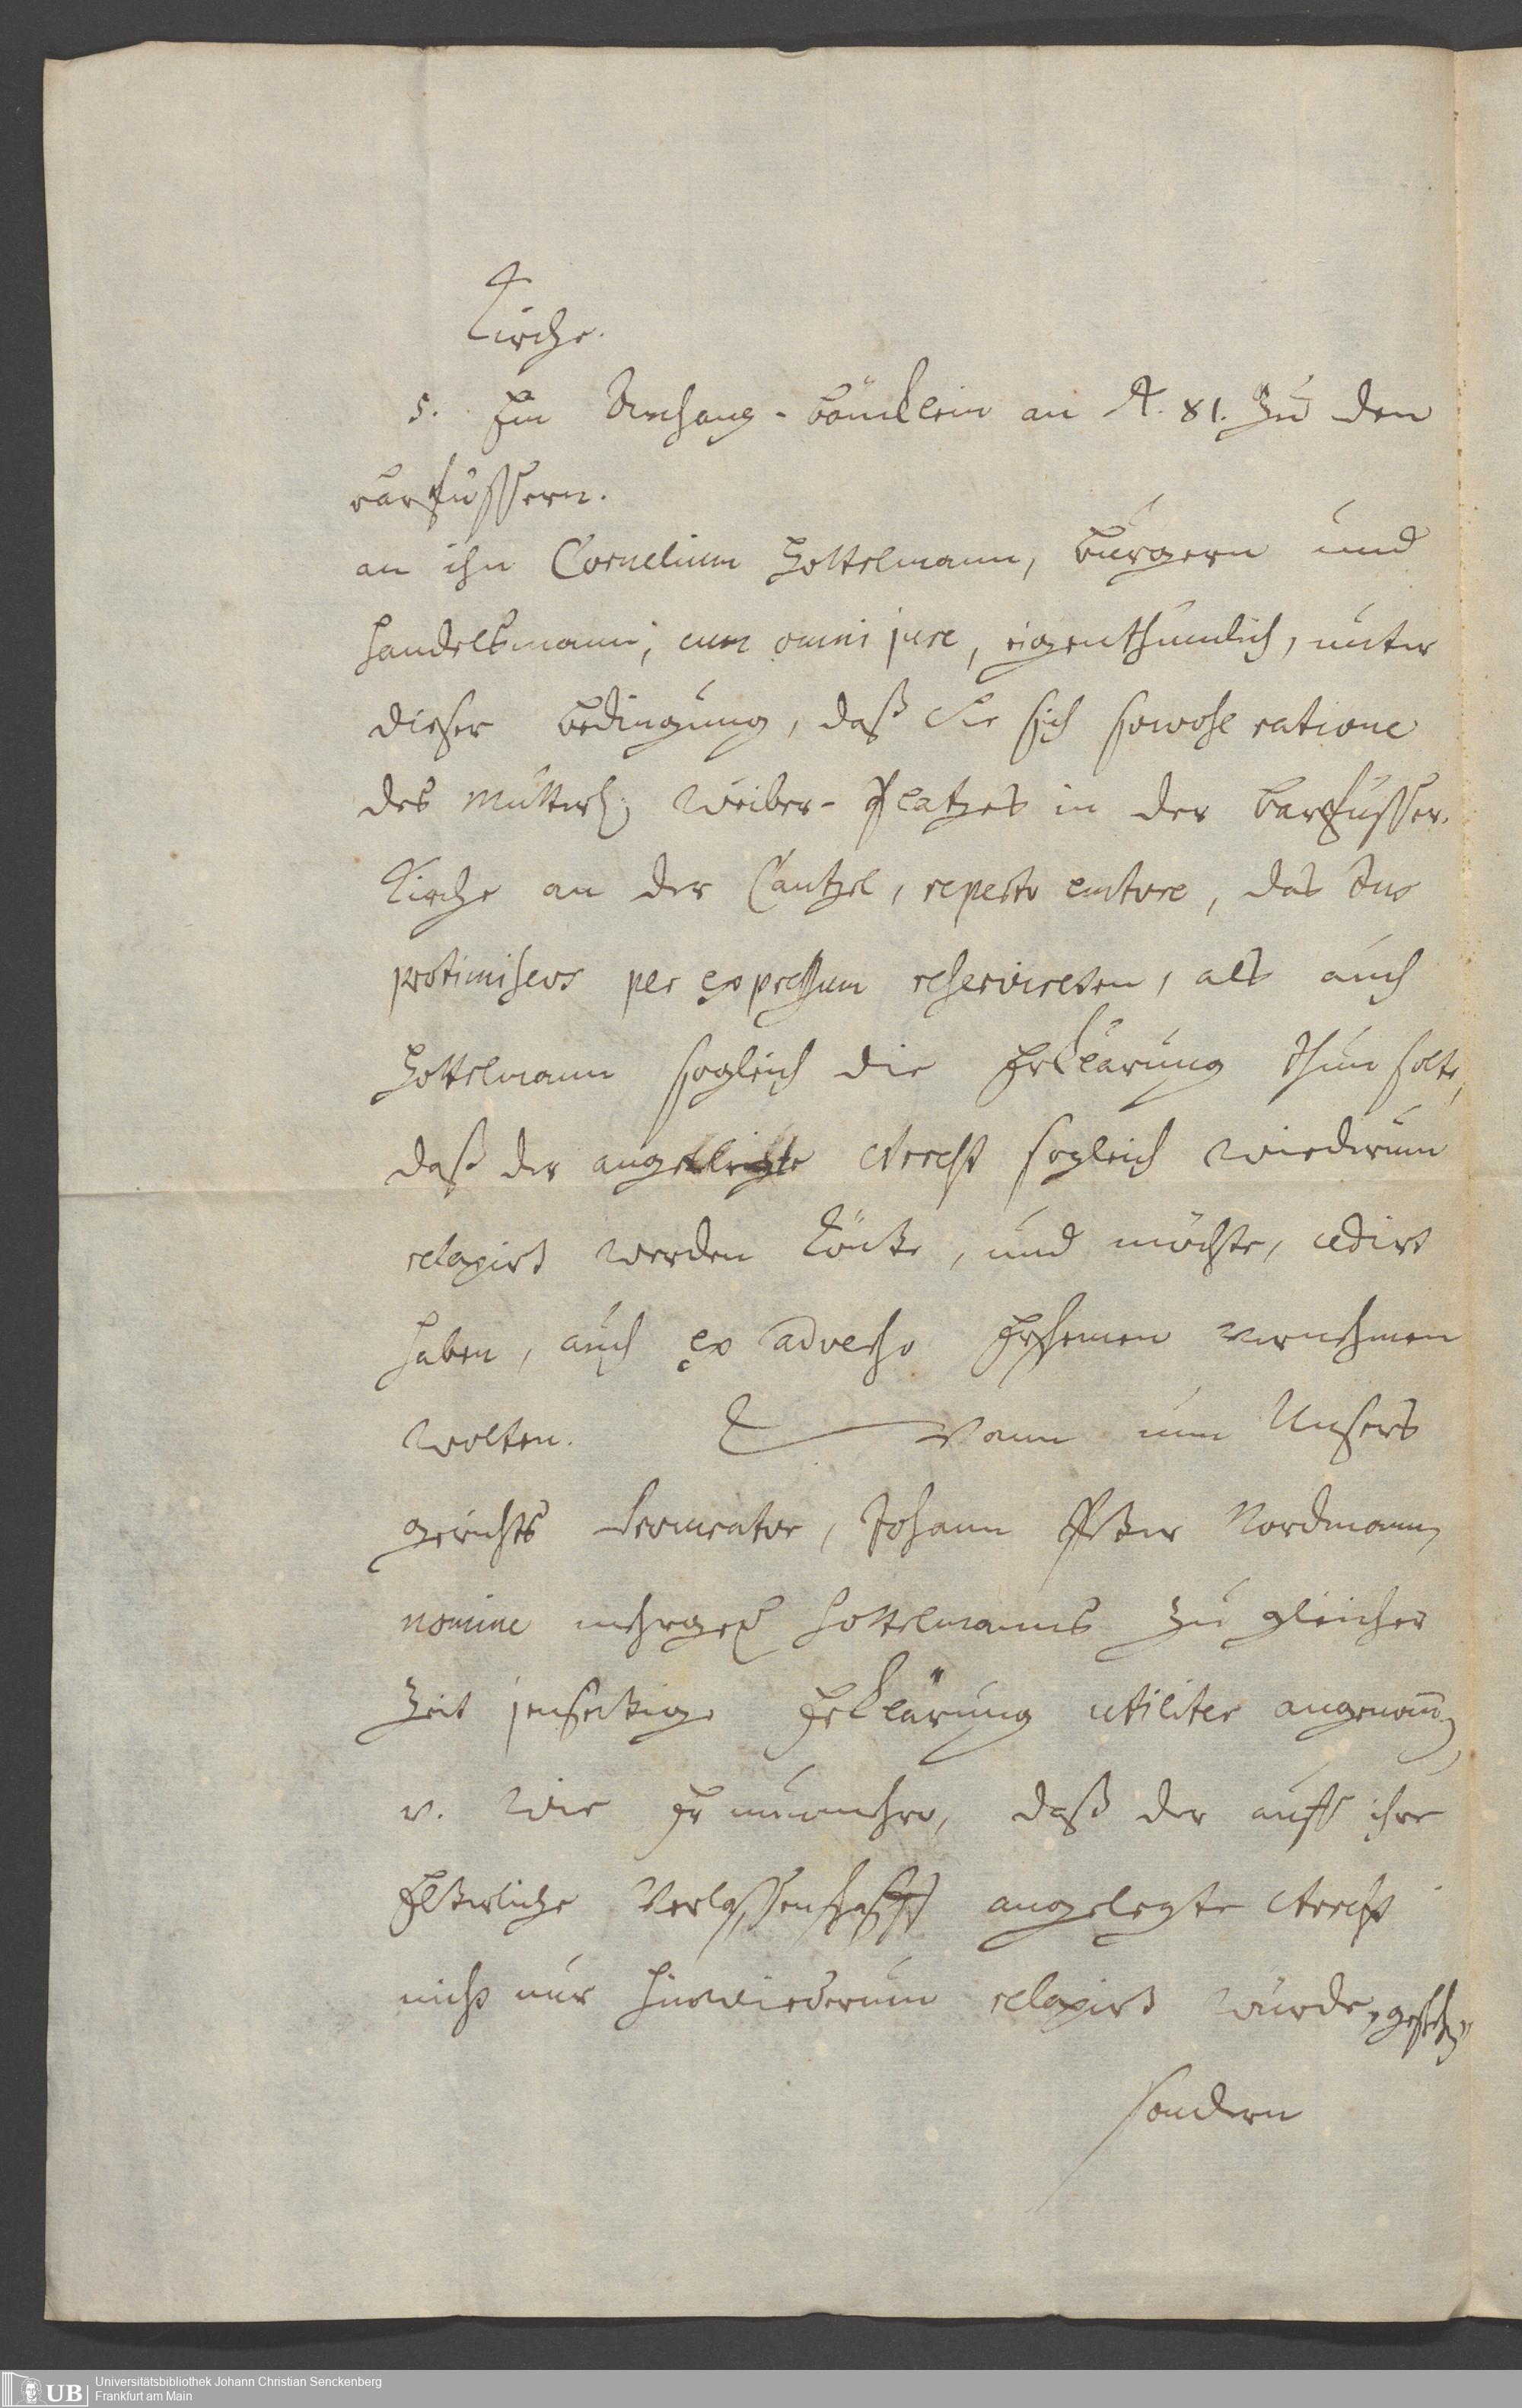 Kirche.
5. Ein Anhang-bäncklein an A. 81. zu den
barfussern.
an ihn Cornelium Hottelmann, Bürgern und
Handelsmann, cum omni jure, eigenthümlich, unter
dieser Bedingung, daß Sie sich sowohl ratione
des Mütterl. Weiber-Platzes in der Barfüsser-
Kirche an der Cantzel, repecto emtore, das Jus
protimiseos per expressum reservireten, als auch
Hottelmann sogleich die Erklärung thun solte,
daß der angelegte Arrest sogleich wiederum
relaxirt werden könte, und möchte, cedirt
haben, auch ex adverso vernehmen
wolten. Wann nun Unsers
gerichts Procurator, Johann Peter Nordmann,
nomine mehrged. Hottelmanns zu gleicher
Zeit jenseitige Erklärung utiliter angenom̄en,
u. wie Er nunmehro, daß der auff ihre
Elterliche Verlassenschafft angelegte Arrest
nicht nur hinwiederum relaxirt würde,
sondern
UB
Universitätsbibliothek Johann Christian Senckenberg
Frankfurt am Main